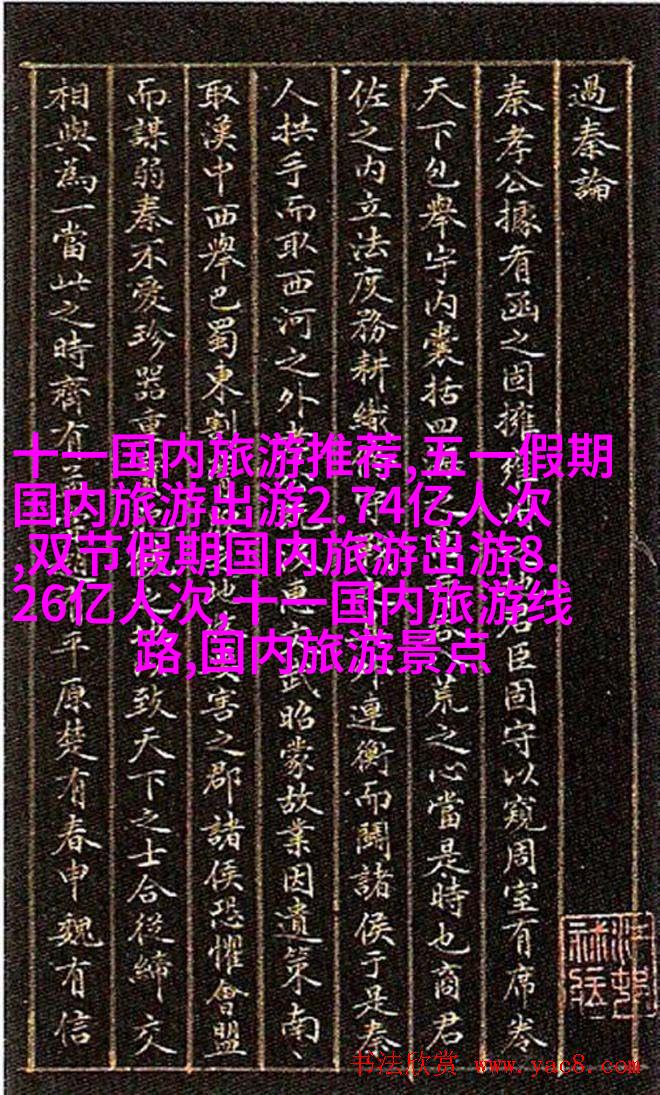 過秦論
秦孝公據有函之固擁 地君臣固守以窺周室有席卷
天下包舉宇内囊括四 荒之心當是時也商君
佐之内立法度務耕織 連衡而鬭諸侯于是秦
人拱手而取西河之外 武昭蒙故業因遺策南、
取漢中西舉巴蜀東割 地 害之郡諸侯恐懼會盟
而謀弱秦不愛珍器重 致天下之士合從締交
相與為一當此之時齊有 平原楚有春申魏有信
十一国内旅游推荐,五一假期
国内旅游出游2.74亿人次
,双节假期国内旅游出游8.
26亿人次,十一国内旅游线
路,国内旅游景点
书法欣赏 www.yac8.com